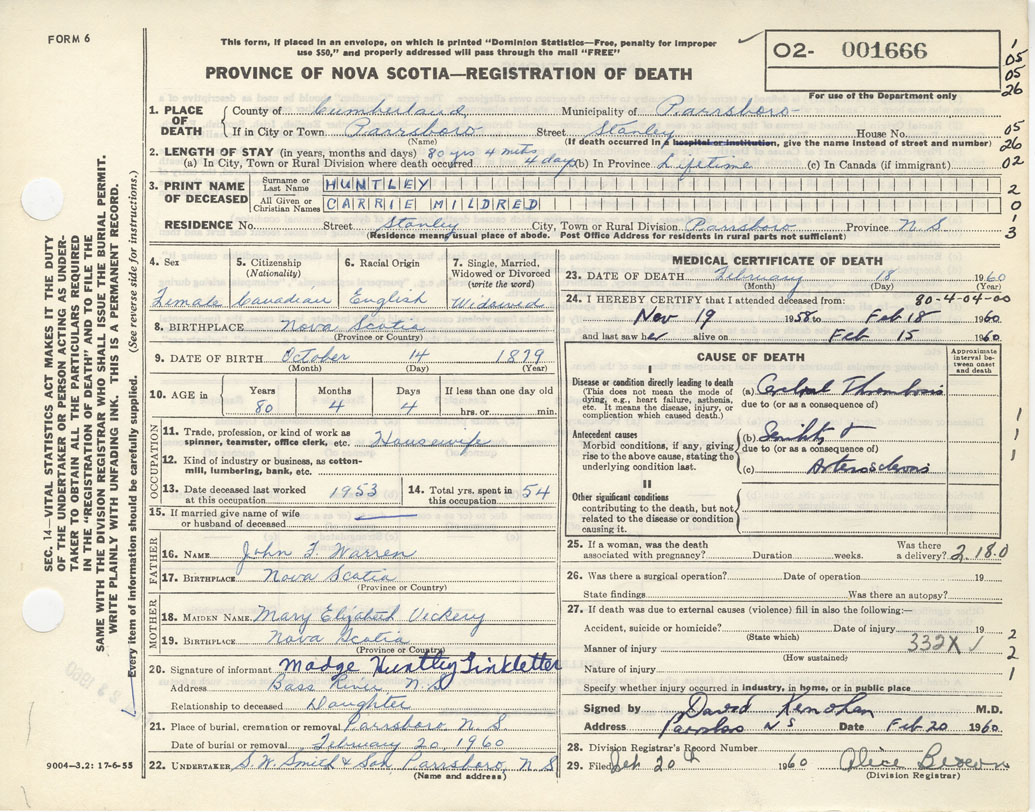 FORM 6
This form, if placed in an envelope, on which is printed "Dominion Statistics—Free, penalty for improper
use $50," and properly addressed will pass through the mail "FREE"
O2- 001666
For use of the Department only
1
05
05
26
PROVINCE OF NOVA SCOTIA—REGISTRATION OF DEATH
1. PLACE OF DEATH
County of Cumberland Municipality of Parrsboro
If in City or Town Parrsboro Street Stanley House No.
(Name) (If death occurred in a hospital or institution, give the name instead of street and number)
05
26
02
2. LENGTH OF STAY (in years, months and days) 80 yrs 4 mts
(a) In City, Town or Rural Division where death occurred 4 days (b) In Province Lifetime (c) In Canada (if immigrant)
3. PRINT NAME OF DECEASED
Surname or Last Name HUNTLEY
All Given or Christian Names CARRIE MILDRED
2
0
3
RESIDENCE No. Street Stanley City, Town or Rural Division Parrsboro Province N.S
(Residence means usual place of abode. Post Office Address for residents in rural parts not sufficient)
4. Sex Female
5. Citizenship (Nationality) Canadian
6. Racial Origin English
7. Single, Married, Widowed or Divorced (write the word) Widowed
8. BIRTHPLACE Nova Scotia
(Province or Country)
9. DATE OF BIRTH October 14 1879
(Month) (Day) (Year)
10. AGE in Years 80 Months 4 Days 4 If less than one day old hrs. or min.
OCCUPATION
11. Trade, profession, or kind of work as spinner, teamster, office clerk, etc. Housewife
12. Kind of industry or business, as cotton-
mill, lumbering, bank, etc.
13. Date deceased last worked at this occupation 1953
14. Total yrs. spent in this occupation 54
15. If married give name of wife or husband of deceased
FATHER
16. NAME John F. Warren
17. BIRTHPLACE Nova Scotia
(Province or Country)
MOTHER
18. MAIDEN NAME Mary Elizabeth Vickery
19. BIRTHPLACE Nova Scotia
(Province or Country)
20. Signature of informant Madge Huntley Linkletter
Address Bass River N.S
Relationship to deceased Daughter
21. Place of burial, cremation or removal Parrsboro N.S
Date of burial or removal February 20, 1960
22. UNDERTAKER S.W. Smith & Son Parrsboro, N.S
(Name and address)
9004—3.2: 17-6-55
MEDICAL CERTIFICATE OF DEATH
23. DATE OF DEATH February 18 1960
(Month) (Day) (Year)
24. I HEREBY CERTIFY that I attended deceased from: 80-4-04-00
Nov 19 1958 to Feb 18 1960
and last saw her alive on Feb 15 1960
CAUSE OF DEATH
Approximate interval between onset and death
I
Disease or condition directly leading to death
(This does not mean the mode of
dying, e.g., heart failure, asthenia,
etc. It means the disease, injury, or
complication which caused death.)
(a) Cerebral Thrombosis
due to (or as a consequence of)
Antecedent causes
Morbid conditions, if any, giving
rise to the above cause, stating the
underlying condition last.
(b) Senility &
due to (or as a consequence of)
(c) Arteriosclerosis
1
1
1
II
Other significant conditions
contributing to the death, but not
related to the disease or condition
causing it.
25. If a woman, was the death associated with pregnancy? Duration weeks. Was there a delivery? 2.18.0
26. Was there a surgical operation? Date of operation 19
State findings Was there an autopsy?
27. If death was due to external causes (violence) fill in also the following:—
Accident, suicide or homicide? Date of injury 19
(State which)
Manner of injury 332X
(How sustained)
Nature of injury
2
2
1
Specify whether injury occurred in industry, in home, or in public place
Signed by David M.D.
Address Parrsboro N S Date Feb 20 1960
28. Division Registrar's Record Number
29. Filed Feb 20th 1960 Alice
(Division Registrar)
SEC. 14—VITAL STATISTICS ACT MAKES IT THE DUTY
OF THE UNDERTAKER OR PERSON ACTING AS UNDER-
TAKER TO OBTAIN ALL THE PARTICULARS REQUIRED
IN THE "REGISTRATION OF DEATH" AND TO FILE THE
SAME WITH THE DIVISION REGISTRAR WHO SHALL ISSUE THE BURIAL PERMIT.
WRITE PLAINLY WITH UNFADING INK. THIS IS A PERMANENT RECORD.
Every item of information should be carefully supplied. (See reverse side for instructions.)